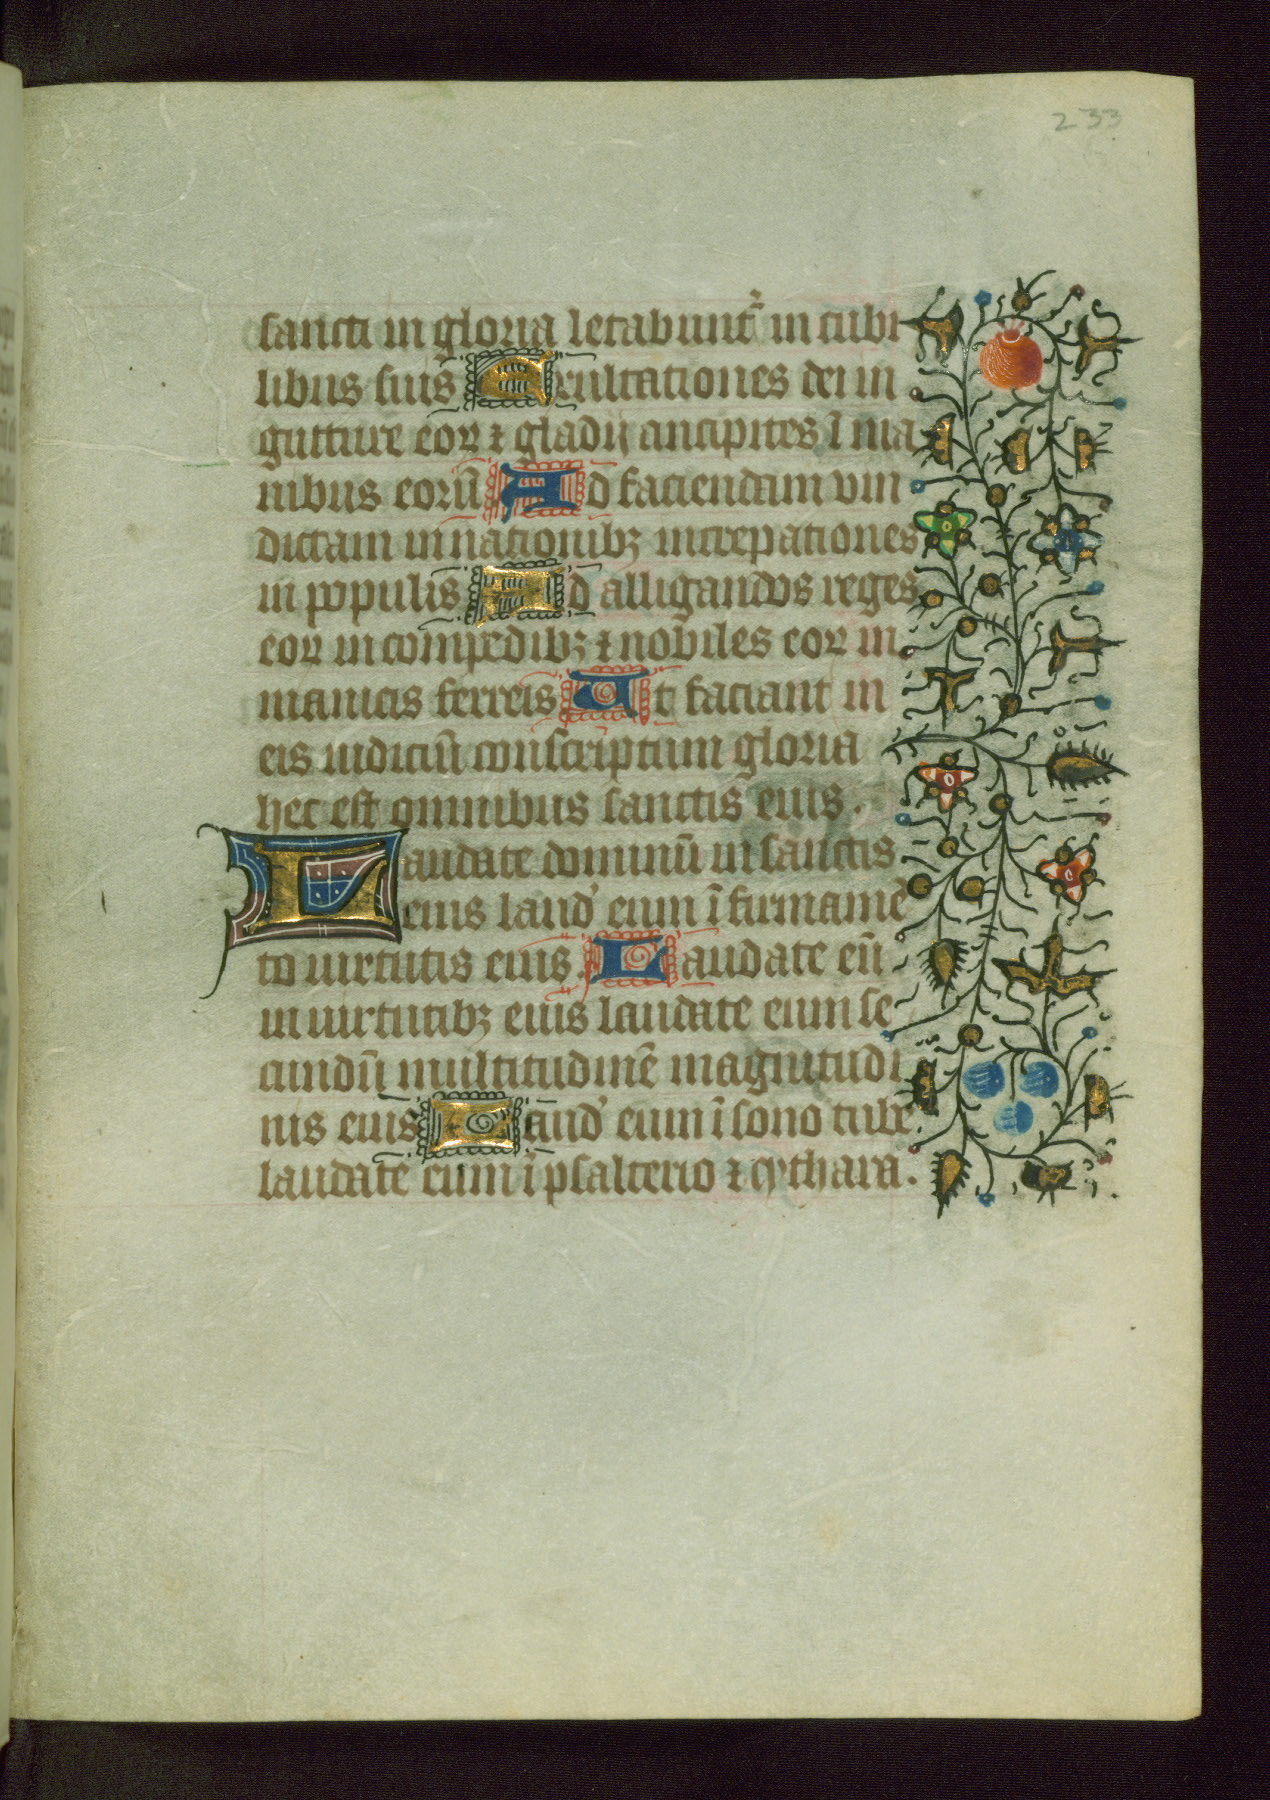 233
sancti in gloria letabunt᷑ in cubi
libus suis Exultationes dei in
gutture eoꝝ ⁊ gladii ancipites ī ma
nibus eorū Ad faciendam vin
dictam in nationibꝫ increpationes
in populis Ad alligandos reges
eoꝝ in compedibꝫ ⁊ nobiles eoꝝ in
manicis ferreis Ut faciant in
eis iudiciū conscriptum gloria
hec est omnibus sanctis eius.
Laudate dominū in sanctis
eius laud' eum ī firmamē
to uirtutis eius. Laudate eū
in uirtutibꝫ eius laudate eum se
cundū multitudinē magnitudi
nis eius Laud' eum ī sono tube.
laudate eum ī psalterio ⁊ cythara.